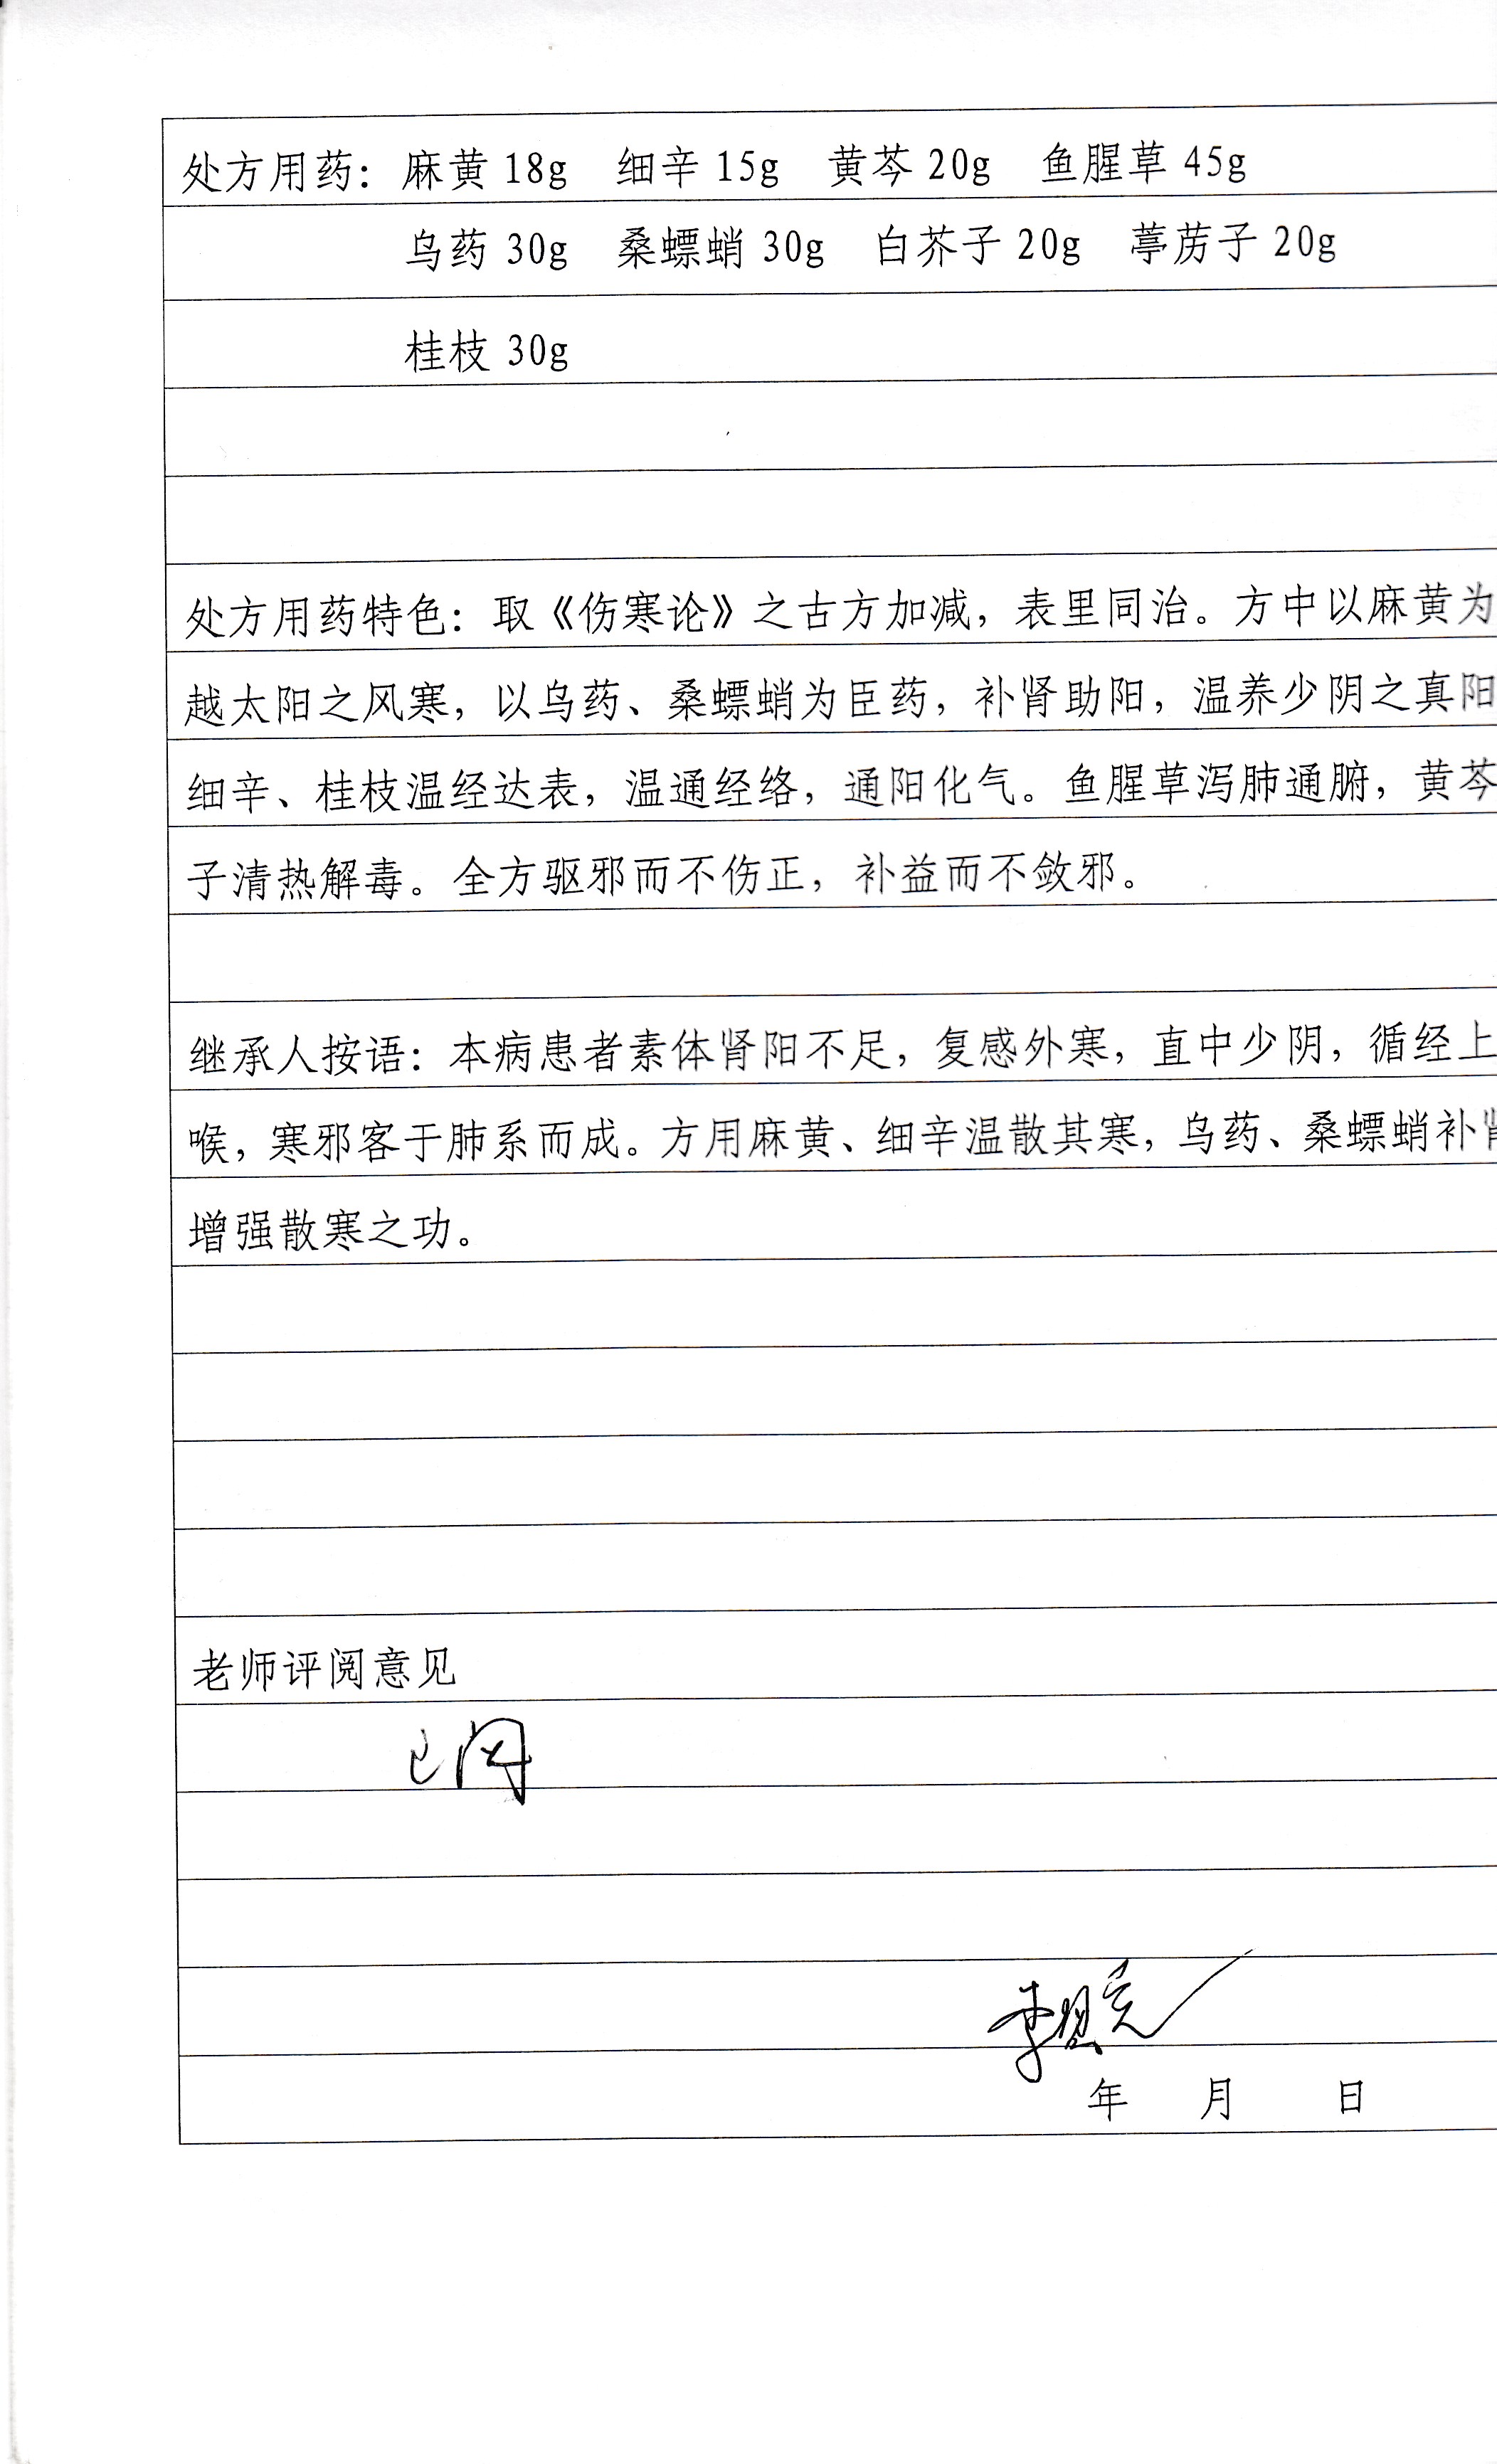 处方用药：麻黄 18g 细辛 15g 黄芩 20g 鱼腥草 45g
乌药 30g 桑螵蛸 30g 白芥子 20g 葶苈子 20g
桂枝 30g
处方用药特色：取《伤寒论》之古方加减，表里同治。方中以麻黄为
越太阳之风寒，以乌药、桑螵蛸为臣药，补肾助阳，温养少阴之真阳
细辛、桂枝温经达表，温通经络，通阳化气。鱼腥草泻肺通腑，黄芩
子清热解毒。全方驱邪而不伤正，补益而不敛邪。
继承人按语：本病患者素体肾阳不足，复感外寒，直中少阴，循经上
喉，寒邪客于肺系而成。方用麻黄、细辛温散其寒，乌药、桑螵蛸补
增强散寒之功。
老师评阅意见
已阅
年 月 日